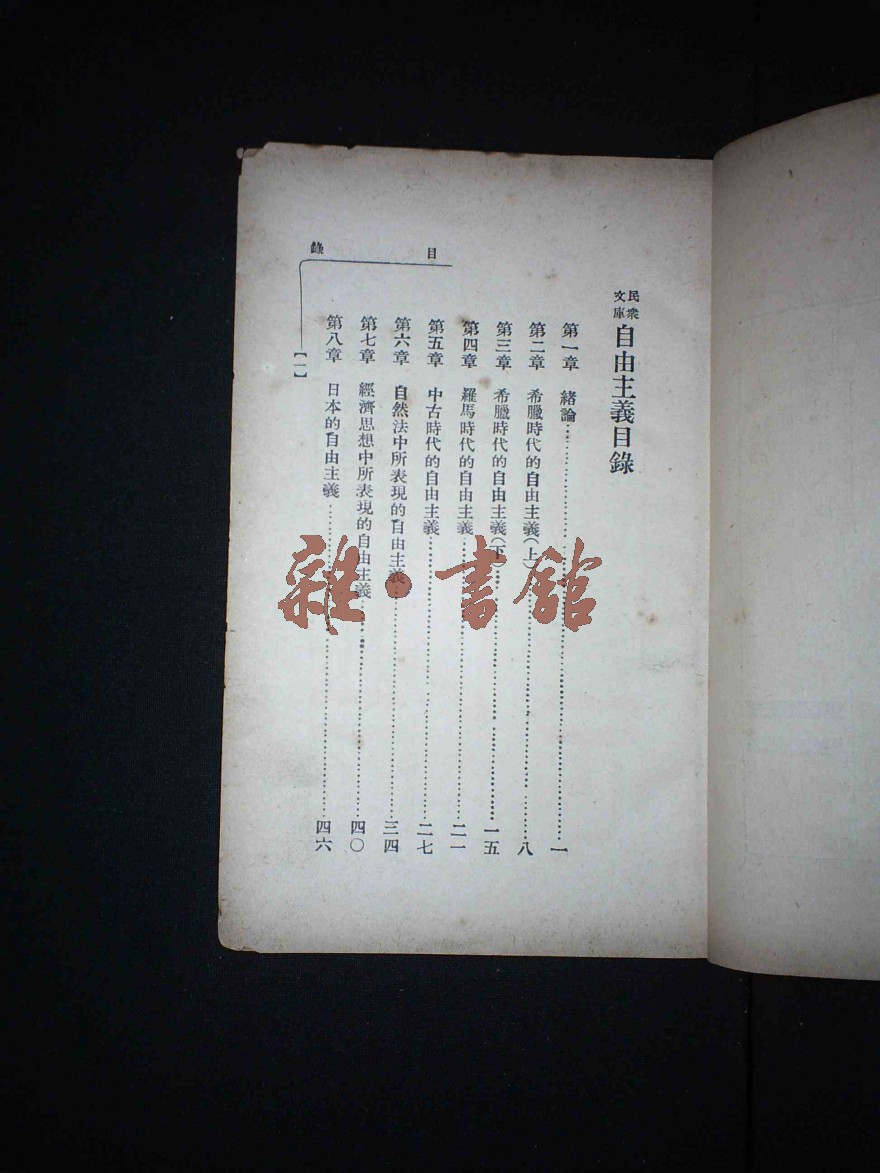 民衆
文庫
自由主義目錄
第一章 緒論……一
第二章 希臘時代的自由主義(上)……八
第三章 希臘時代的自由主義(下)……一五
第四章 羅馬時代的自由主義……二一
第五章 中古時代的自由主義……二七
第六章 自然法中所表現的自由主義……三四
第七章 經濟思想中所表現的自由主義……四〇
第八章 日本的自由主義……四六
目錄
【一】
雜·書館